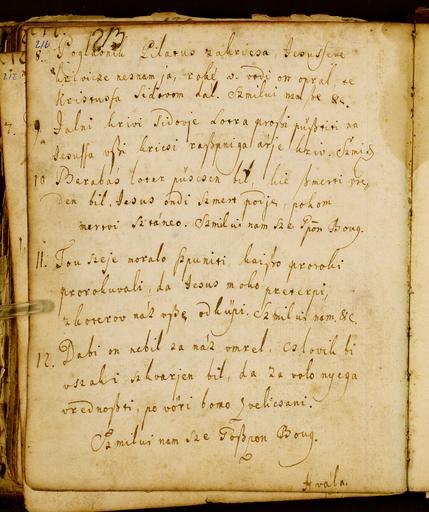 213
216
8. Poglavnik Pilatus zakricsa, Jesusseve
krivicze neznam ja, roke v vodi on opral, te
Kristussa Sidovom dal. Szmilui nam sze &c.
9. Jalni krivi Sidovje Lotra prossi püsztiti na
Jesussa vsi kricsi raszpniga
10. Barabás loter püscsen bil, kie szmerti vre,
den bil. Jesus ondi szmert podje, pokom
mertvi Sztáneo. Szmilui nam sze Gpn Boug.
11. Tou szeje moralo szpuniti, kaiszo proroki
prorokuvali, da Jesus moko preterpi,
z koterov náz vsze odküpi. Szmilui nam, &c.
12. Dabi on nebil za náz vmrel, cslovik bi
vszaki szkvarjen bil, da za volo nyega
vrednoszti, po vöri bomo zvelicsani.
Szmilui nam sze Goszpon Boug.
Hvála.